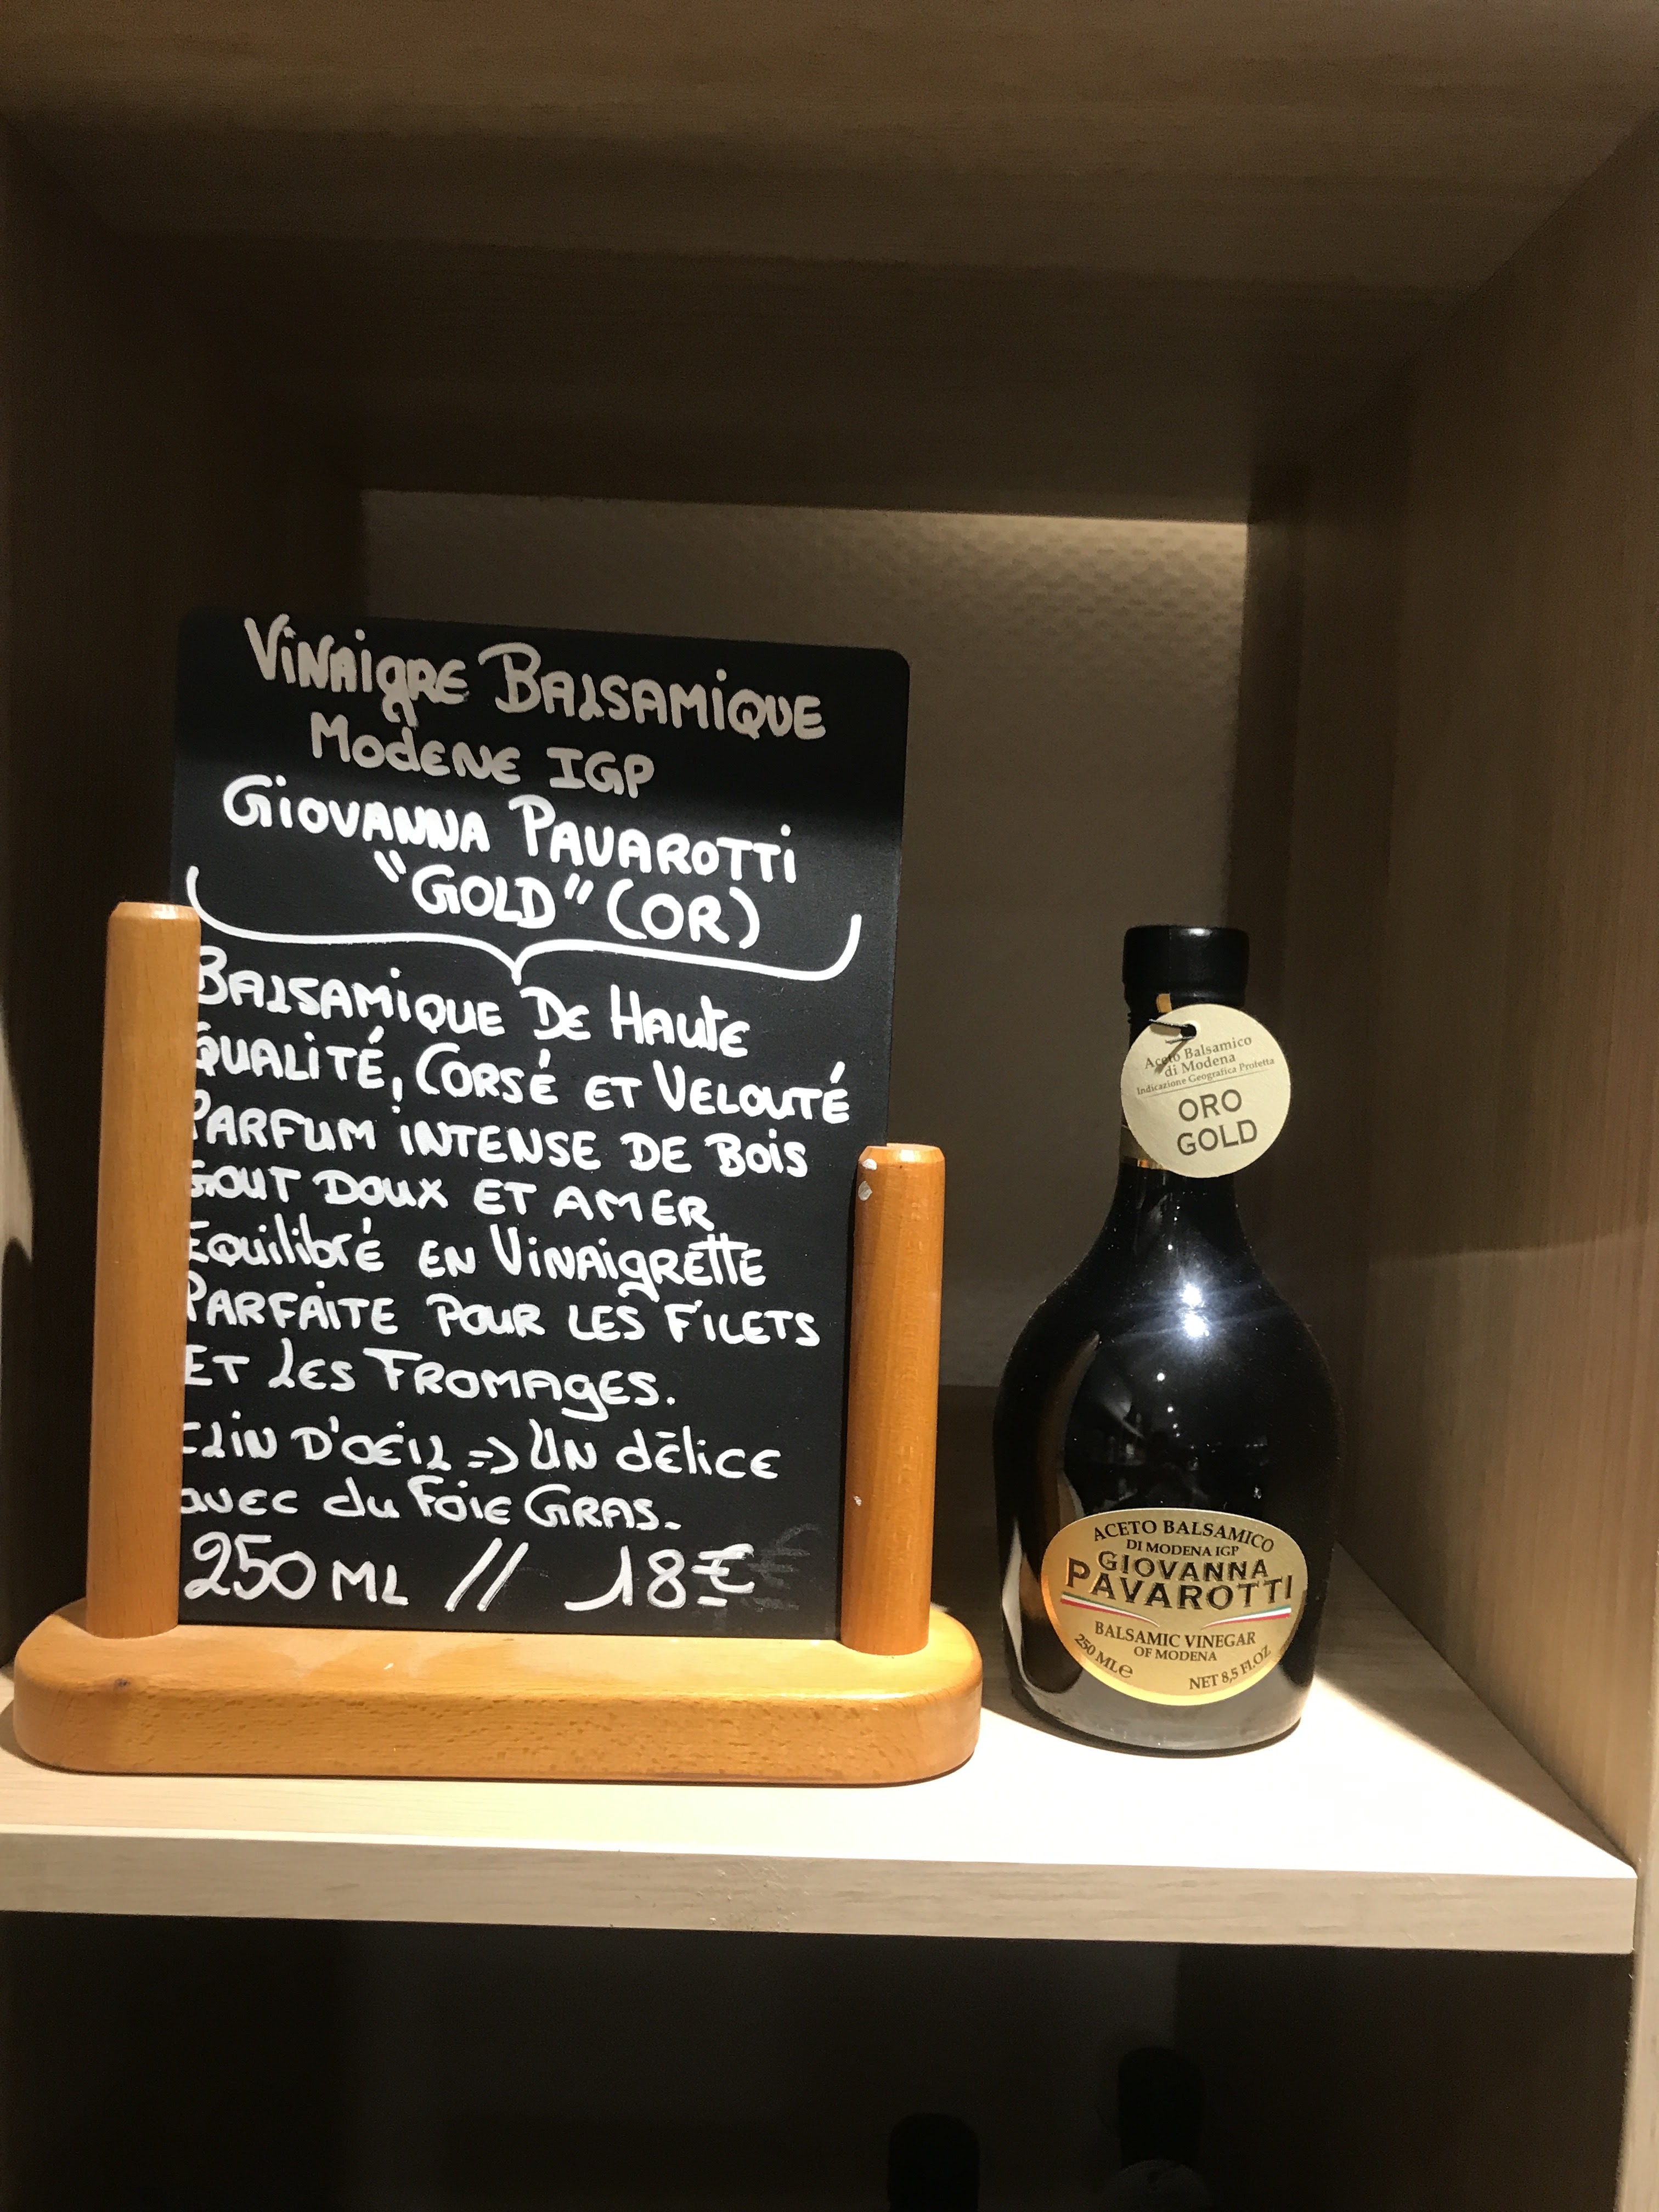 Vinaigre Balsamique
Modene IGP
Giovanna Pavarotti
"GOLD" (OR)
Balsamique De Haute
Qualité, Corsé et Velouté
Parfum intense de Bois
Gout Doux et Amer
Equilibré en Vinaigrette
Parfaite pour les Filets
et les Fromages.
Clin d'oeil => Un délice
avec du Foie Gras.
250 ML // 18€
Aceto Balsamico
di Modena
Indicazione Geografica Protetta
ORO
GOLD
ACETO BALSAMICO
DI MODENA IGP
GIOVANNA
PAVAROTTI
BALSAMIC VINEGAR
OF MODENA
250 ML℮ NET 8,5 FL.OZ